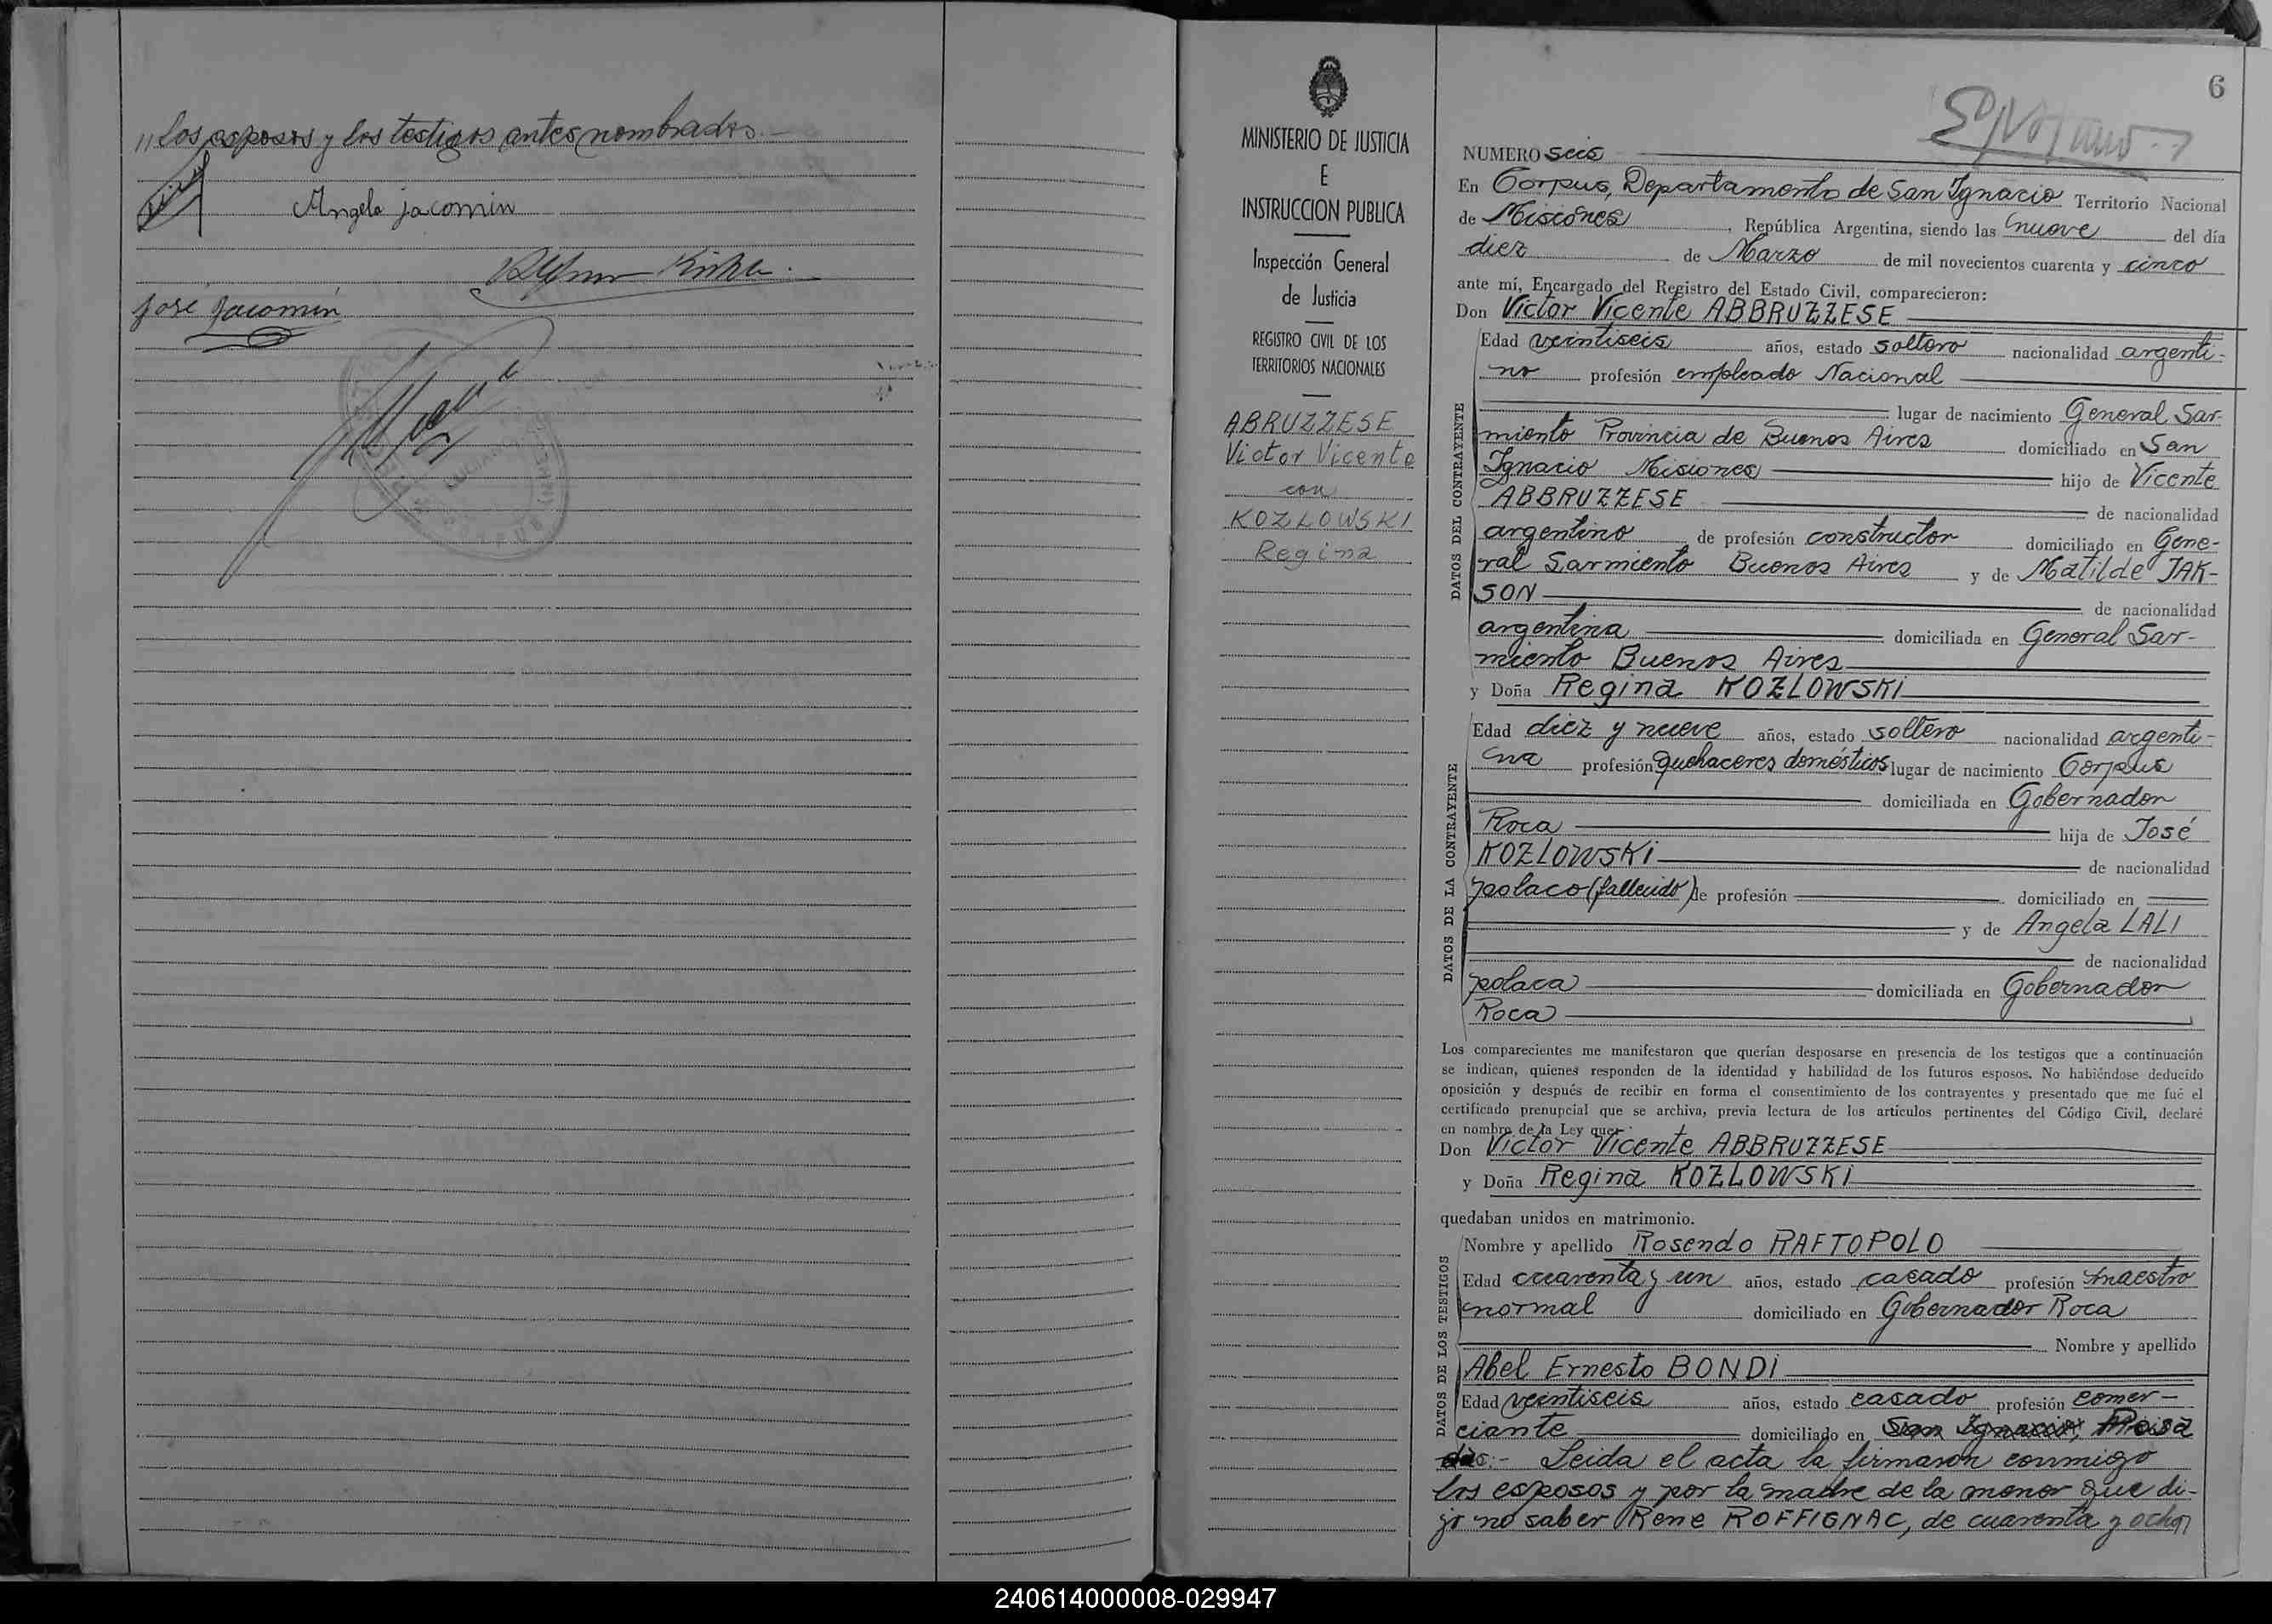 // los esposos y los testigos antes nombrados.-
Angela jacomin
José Jacomín
MINISTERIO DE JUSTICIA
E
INSTRUCCION PUBLICA
Inspección General
de Justicia
REGISTRO CIVIL DE LOS
TERRITORIOS NACIONALES
ABRUZZESE
Victor Vicente
con
KOZLOWSKI
Regina
6
NUMERO seis
En Corpus, Departamento de San Ignacio Territorio Nacional
de Misiones, República Argentina, siendo las nueve del día
diez de Marzo de mil novecientos cuarenta y cinco
ante mí, Encargado del Registro del Estado Civil, comparecieron:
Don Victor Vicente ABBRUZZESE
DATOS DEL CONTRAYENTE
Edad veintiseis años, estado soltero nacionalidad argenti-
no profesión empleado Nacional
lugar de nacimiento General Sar-
miento Provincia de Buenos Aires domiciliado en San
Ignacio Misiones hijo de Vicente
ABBRUZZESE de nacionalidad
argentino de profesión constructor domiciliado en Gene-
ral Sarmiento Buenos Aires y de Matilde JAK-
SON de nacionalidad
argentina domiciliada en General Sar-
miento Buenos Aires
y Doña Regina KOZLOWSKI
DATOS DE LA CONTRAYENTE
Edad diez y nueve años, estado soltero nacionalidad argenti-
na profesión quehaceres domésticos lugar de nacimiento Corpus
domiciliada en Gobernador
Roca hija de José
KOZLOWSKI de nacionalidad
polaco (fallecido) de profesión domiciliado en
y de Angela LALI
de nacionalidad
polaca domiciliada en Gobernador
Roca
Los comparecientes me manifestaron que querían desposarse en presencia de los testigos que a continuación
se indican, quienes responden de la identidad y habilidad de los futuros esposos. No habiéndose deducido
oposición y después de recibir en forma el consentimiento de los contrayentes y presentado que me fué el
certificado prenupcial que se archiva, previa lectura de los artículos pertinentes del Código Civil, declaré
en nombre de la Ley que:
Don Victor Vicente ABBRUZZESE
y Doña Regina KOZLOWSKI
quedaban unidos en matrimonio.
DATOS DE LOS TESTIGOS
Nombre y apellido Rosendo RAFTOPOLO
Edad cuarenta y un años, estado casado profesión maestro
normal domiciliado en Gobernador Roca
Nombre y apellido
Abel Ernesto BONDI
Edad veintiseis años, estado casado profesión comer-
ciante domiciliado en San Ignacio,
Leida el acta la firmaron conmigo
los esposos y por la madre de la menor que di-
jo no saber Rene ROFFIGNAC, de cuarenta y ocho
240614000008-029947